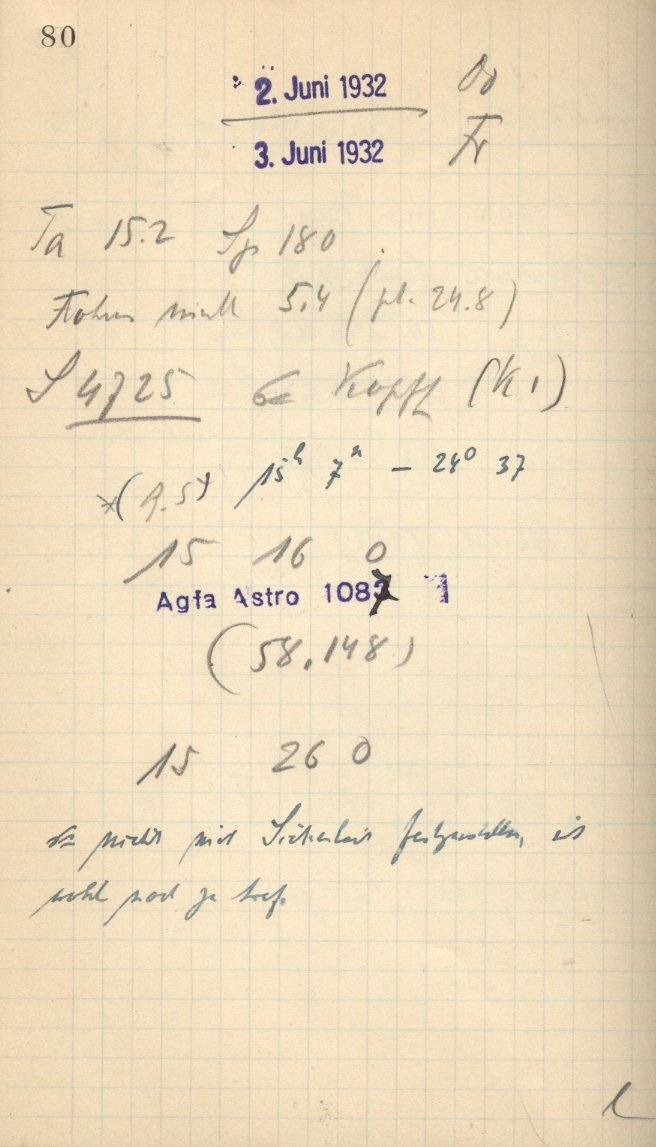 80
2. Juni 1932 Do
3. Juni 1932 Fr
Ta 15.2 Sp 180
5.4 (pl. 24.8)
S 4725 Kopff (K 1)
*(9.5) 15h 7m – 24° 37
15 16 0
Agfa Astro 1087 1
(58,148)
15 26 0
nicht mit Sicherheit festzustellen, ist
wohl noch zu tief.